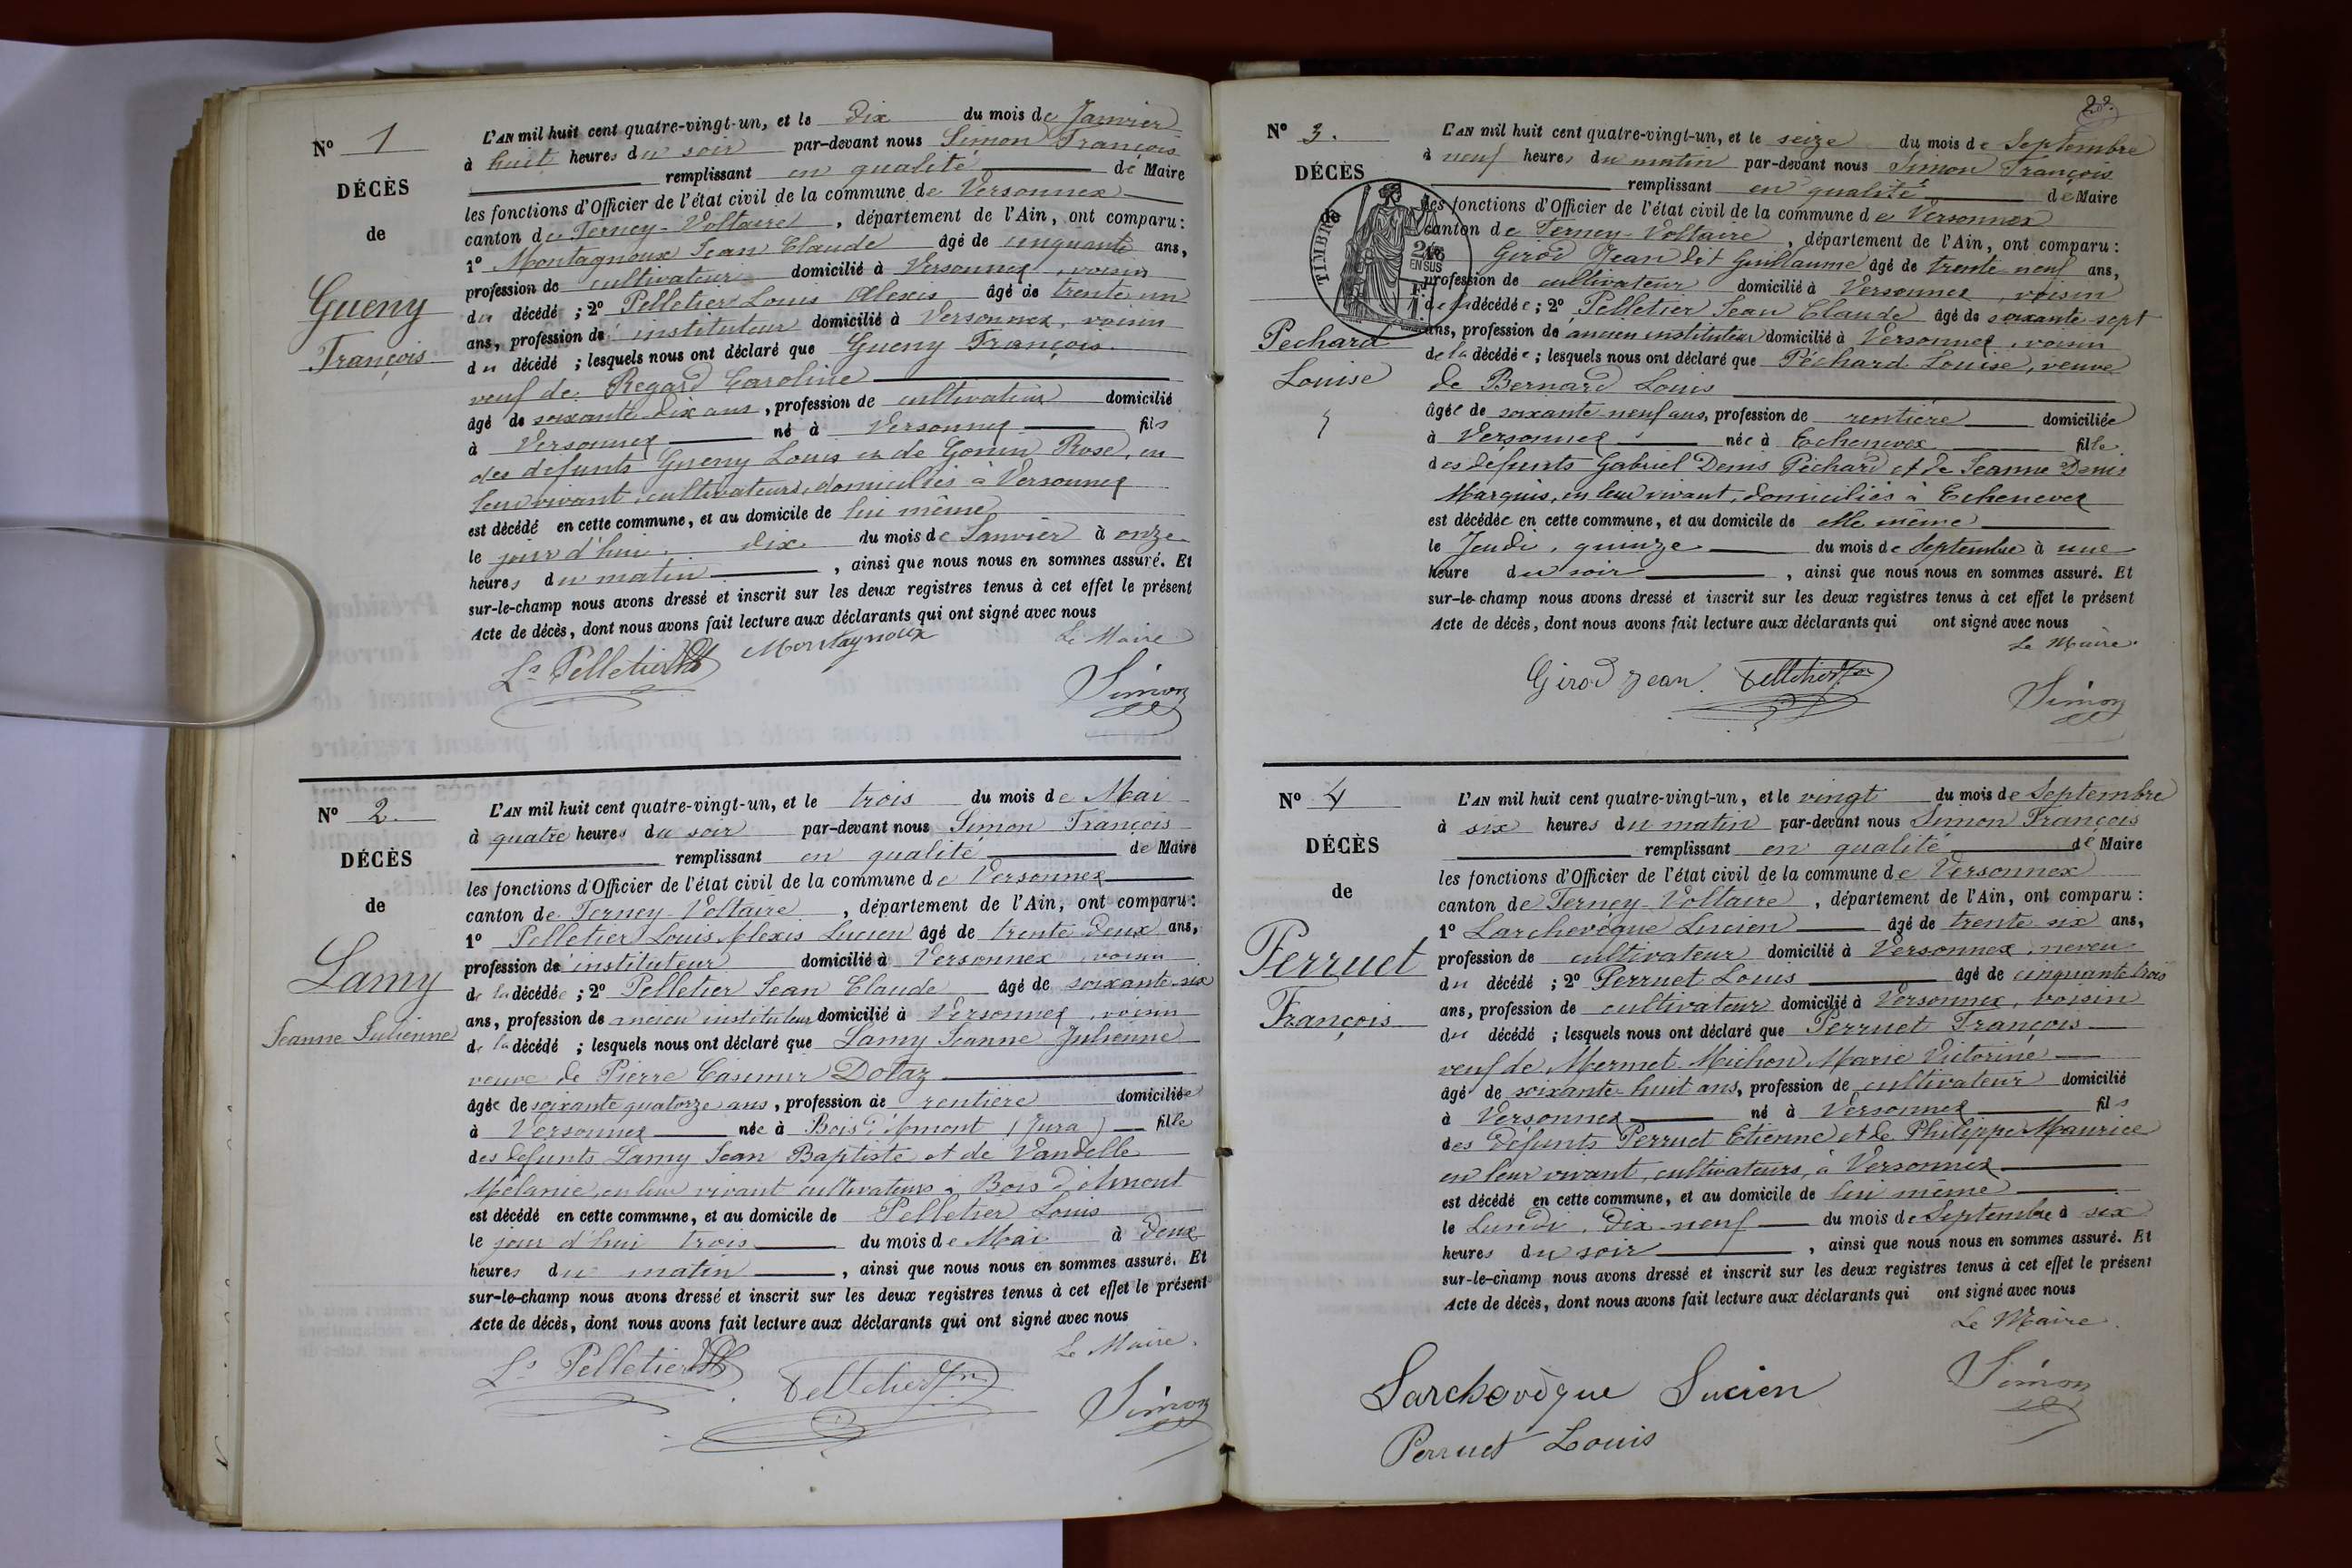 Nº 1
DÉCÈS
de
Gueny
François
L'AN mil huit cent quatre-vingt-un, et le Dix du mois de Janvier
à huit heures du soir par-devant nous Simon François
remplissant en qualité de Maire
les fonctions d'Officier de l'état civil de la commune de Versonnex
canton de Ferney-Voltaire, département de l'Ain, ont comparu :
1º Montagnoux Jean Claude âgé de cinquante ans,
profession de cultivateur domicilié à Versonnex, voisin
du décédé ; 2º Pelletier Louis Alexis âgé de trente un
ans, profession de instituteur domicilié à Versonnex, voisin
du décédé ; lesquels nous ont déclaré que Gueny François
veuf de Regard Caroline
âgé de soixante-dix ans, profession de cultivateur domicilié
à Versonnex né à Versonnex fils
des défunts Gueny Louis et de Gonin Rose, en
leur vivant, cultivateurs, domiciliés à Versonnex
est décédé en cette commune, et au domicile de lui même
le jour d'hui dix du mois de Janvier à onze
heures du matin, ainsi que nous nous en sommes assuré. Et
sur-le-champ nous avons dressé et inscrit sur les deux registres tenus à cet effet le présent
Acte de décès, dont nous avons fait lecture aux déclarants qui ont signé avec nous
Le Maire
Ls Pelletier Montagnoux
Simon
Nº 2.
DÉCÈS
de
Lamy
Jeanne Julienne
L'AN mil huit cent quatre-vingt-un, et le trois du mois de Mai
à quatre heures du soir par-devant nous Simon François
remplissant en qualité de Maire
les fonctions d'Officier de l'état civil de la commune de Versonnex
canton de Ferney-Voltaire, département de l'Ain, ont comparu :
1º Pelletier Louis Alexis Lucien âgé de trente deux ans,
profession de instituteur domicilié à Versonnex voisin
de la décédée ; 2º Pelletier Jean Claude âgé de soixante-six
ans, profession de ancien instituteur domicilié à Versonnex, voisin
de la décédé ; lesquels nous ont déclaré que Lamy Jeanne Julienne
veuve de Pierre Casimir Dolaz
âgée de soixante quatorze ans, profession de rentière domiciliée
à Versonnex née à Bois d'Amont (Jura) fille
des défunts Lamy Jean Baptiste et de Vandelle
Mélanie, en leur vivant cultivateurs à Bois d'Amont
est décédé en cette commune, et au domicile de Pelletier Louis
le jour d'hui trois du mois de Mai à deux
heures du matin, ainsi que nous nous en sommes assuré. Et
sur-le-champ nous avons dressé et inscrit sur les deux registres tenus à cet effet le présent
Acte de décès, dont nous avons fait lecture aux déclarants qui ont signé avec nous
Le Maire.
Ls Pelletier Pelletier
Simon
22.
Nº 3.
DÉCÈS
de
TIMBRE
2/10
EN SUS
Pechard
Louise
L'AN mil huit cent quatre-vingt-un, et le seize du mois de Septembre
à neuf heures du matin par-devant nous Simon François
remplissant en qualité de Maire
les fonctions d'Officier de l'état civil de la commune de Versonnex
canton de Ferney-Voltaire, département de l'Ain, ont comparu :
Girod Jean dit Guillaume âgé de trente-neuf ans,
profession de cultivateur domicilié à Versonnex, voisin
de la décédée ; 2º Pelletier Jean Claude âgé de soixante-sept
ans, profession de ancien instituteur domicilié à Versonnex, voisin
de la décédée ; lesquels nous ont déclaré que Péchard Louise, veuve
de Bernard Louis
âgée de soixante-neuf ans, profession de rentière domiciliée
à Versonnex née à Echenevex fille
des défunts Gabriel Denis Péchard et de Jeanne Denis
Marquis, en leur vivant, domiciliés à Echenevex
est décédée en cette commune, et au domicile de elle même
le Jeudi, quinze du mois de Septembre à une
heure du soir, ainsi que nous nous en sommes assuré. Et
sur-le-champ nous avons dressé et inscrit sur les deux registres tenus à cet effet le présent
Acte de décès, dont nous avons fait lecture aux déclarants qui ont signé avec nous
Le Maire.
Girod Jean. Pelletier
Simon
Nº 4
DÉCÈS
de
Perruet
François
L'AN mil huit cent quatre-vingt-un, et le vingt du mois de Septembre
à six heures du matin par-devant nous Simon François
remplissant en qualité de Maire
les fonctions d'Officier de l'état civil de la commune de Versonnex
canton de Ferney-Voltaire, département de l'Ain, ont comparu :
1º Larchevêque Lucien âgé de trente six ans,
profession de cultivateur domicilié à Versonnex, neveu
du décédé ; 2º Perruet Louis âgé de cinquante trois
ans, profession de cultivateur domicilié à Versonnex, voisin
du décédé ; lesquels nous ont déclaré que Perruet François
veuf de Mermet Michon Marie Victorine
âgé de soixante-huit ans, profession de cultivateur domicilié
à Versonnex né à Versonnex fils
des défunts Perruet Etienne et de Philippe Maurice
en leur vivant, cultivateurs, à Versonnex
est décédé en cette commune, et au domicile de lui même
le Lundi, dix-neuf du mois de Septembre à six
heures du soir, ainsi que nous nous en sommes assuré. Et
sur-le-champ nous avons dressé et inscrit sur les deux registres tenus à cet effet le présent
Acte de décès, dont nous avons fait lecture aux déclarants qui ont signé avec nous
Le Maire.
Larchevèque Lucien
Simon
Perruet Louis